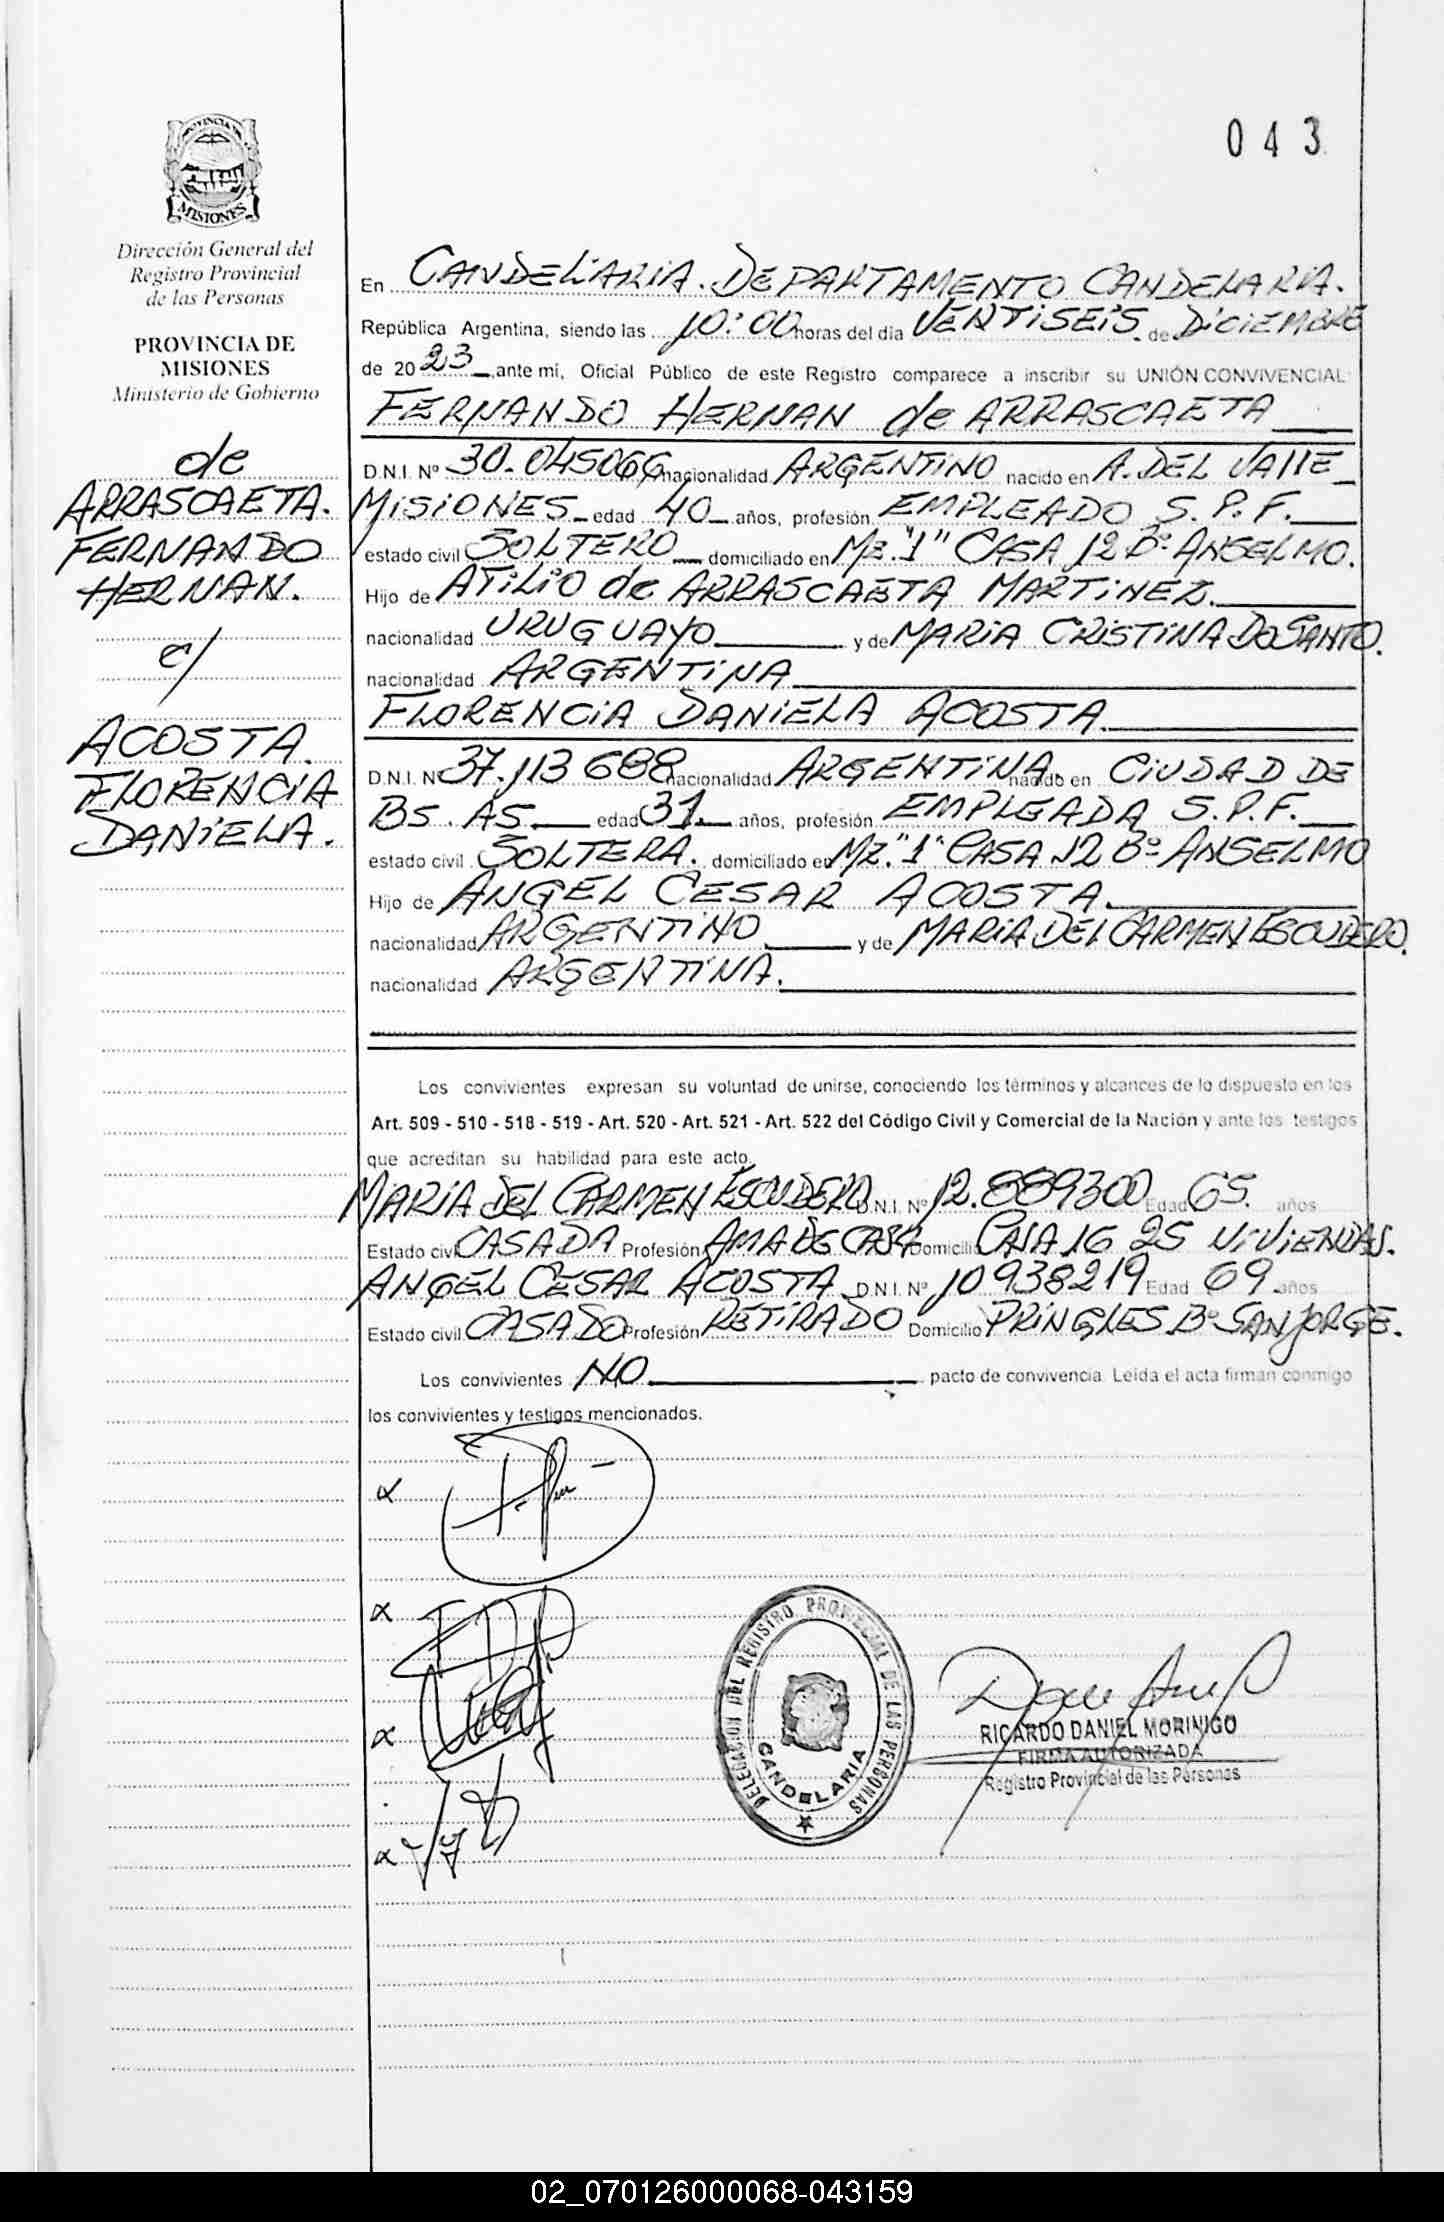 043
PROVINCIA DE
MISIONES
Dirección General del
Registro Provincial
de las Personas
PROVINCIA DE
MISIONES
Ministerio de Gobierno
de
ARRASCAETA.
FERNANDO
HERNAN.
c/
ACOSTA.
FLORENCIA
DANIELA.
En CANDELARIA. DEPARTAMENTO CANDELARIA.
República Argentina, siendo las 10:00 horas del día VENTISEIS de DICIEMBRE
de 2023 ante mí, Oficial Público de este Registro comparece a inscribir su UNIÓN CONVIVENCIAL:
FERNANDO HERNAN de ARRASCAETA
D.N.I. Nº 30.045066 nacionalidad ARGENTINO nacido en A. DEL VALLE
MISIONES edad 40 años, profesión EMPLEADO S.P.F.
estado civil SOLTERO domiciliado en Mz. "1" CASA 12 Bº ANSELMO.
Hijo de ATILIO de ARRASCAETA MARTINEZ.
nacionalidad URUGUAYO y de MARIA CRISTINA DO SANTO.
nacionalidad ARGENTINA
FLORENCIA DANIELA ACOSTA.
D.N.I. Nº 37.113688 nacionalidad ARGENTINA nacido en CIUDAD DE
BS. AS. edad 31 años, profesión EMPLEADA S.P.F.
estado civil SOLTERA. domiciliado en Mz. "1" CASA 12 Bº ANSELMO
Hijo de ANGEL CESAR ACOSTA.
nacionalidad ARGENTINO y de MARIA DEL CARMEN ESCUDERO.
nacionalidad ARGENTINA.
Los convivientes expresan su voluntad de unirse, conociendo los términos y alcances de lo dispuesto en los
Art. 509 - 510 - 518 - 519 - Art. 520 - Art. 521 - Art. 522 del Código Civil y Comercial de la Nación y ante los testigos
que acreditan su habilidad para este acto.
MARIA DEL CARMEN ESCUDERO D.N.I. Nº 12.889300 Edad 65. años
Estado civil CASADA Profesión AMA DE CASA Domicilio CASA 16 25 VIVIENDAS.
ANGEL CESAR ACOSTA D.N.I. Nº 10938219 Edad 69 años
Estado civil CASADO Profesión RETIRADO Domicilio PRINGLES Bº SAN JORGE.
Los convivientes NO pacto de convivencia. Leída el acta firman conmigo
los convivientes y testigos mencionados.
DELEGACION DEL REGISTRO PROVINCIAL DE LAS PERSONAS
CANDELARIA
RICARDO DANIEL MORINIGO
FIRMA AUTORIZADA
Registro Provincial de las Personas
02_070126000068-043159